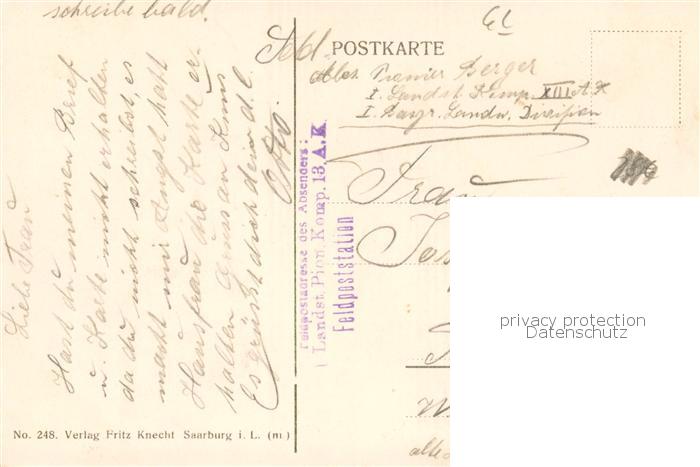 schreibe bald.
Liebe Frau
Hast du meinen Brief
u. Karte nicht erhalten
da du nicht schreibst, es
macht mir Angst hatt
Hausfrau die Karte er-
halten Gruss an Kuns
Es grüsst dich dein d. l.
Otto.
No. 248. Verlag Fritz Knecht Saarburg i. L. (m)
Feldpostadresse des Absenders:
(Landst. Pion. Komp. 13. A. K.
Feldpoststation
Feld.
POSTKARTE
Abs. Pionier Berger
I. Landst. Komp. XIII A.K
I. Bayr. Landw. Division
Frau
privacy protection
Datenschutz